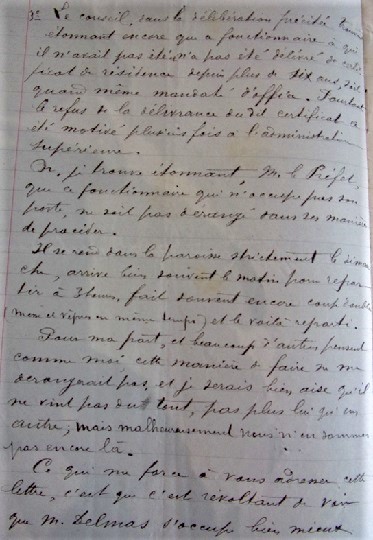 3° Le conseil, dans la délibération précitée, trouve
étonnant encore que ce fonctionnaire à qui
il n'avait pas été, n'a pas été délivré de certi
ficat de résidence depuis plus de six ans, soit
quand même mandaté d'office. Pourtant
le refus de la délivrance du dit certificat a
été motivé plusieurs fois à l'administration
supérieure.
Or, je trouve étonnant, M. le Préfet,
que ce fonctionnaire qui n'occupe pas son
port, ne soit pas dérangé dans ses manières
de procéder.
Il se rend dans la paroisse strictement le diman
che, arrive bien souvent le matin pour repar
tir à 3 heures, fait souvent encore coup double
(messe et vêpres en même temps) et le voilà reparti.
Pour ma part, et beaucoup d'autres pensent
comme moi cette manière de faire ne me
dérangerait pas, et je serais bien aise qu'il
ne vint pas du tout, pas plus lui qu'un
autre; mais malheureusement nous n'en sommes
pas encore là.
Ce qui me force à vous adresser cette
lettre, c'est que c'est révoltant de voir
que M. Delmas s'occupe bien mieux